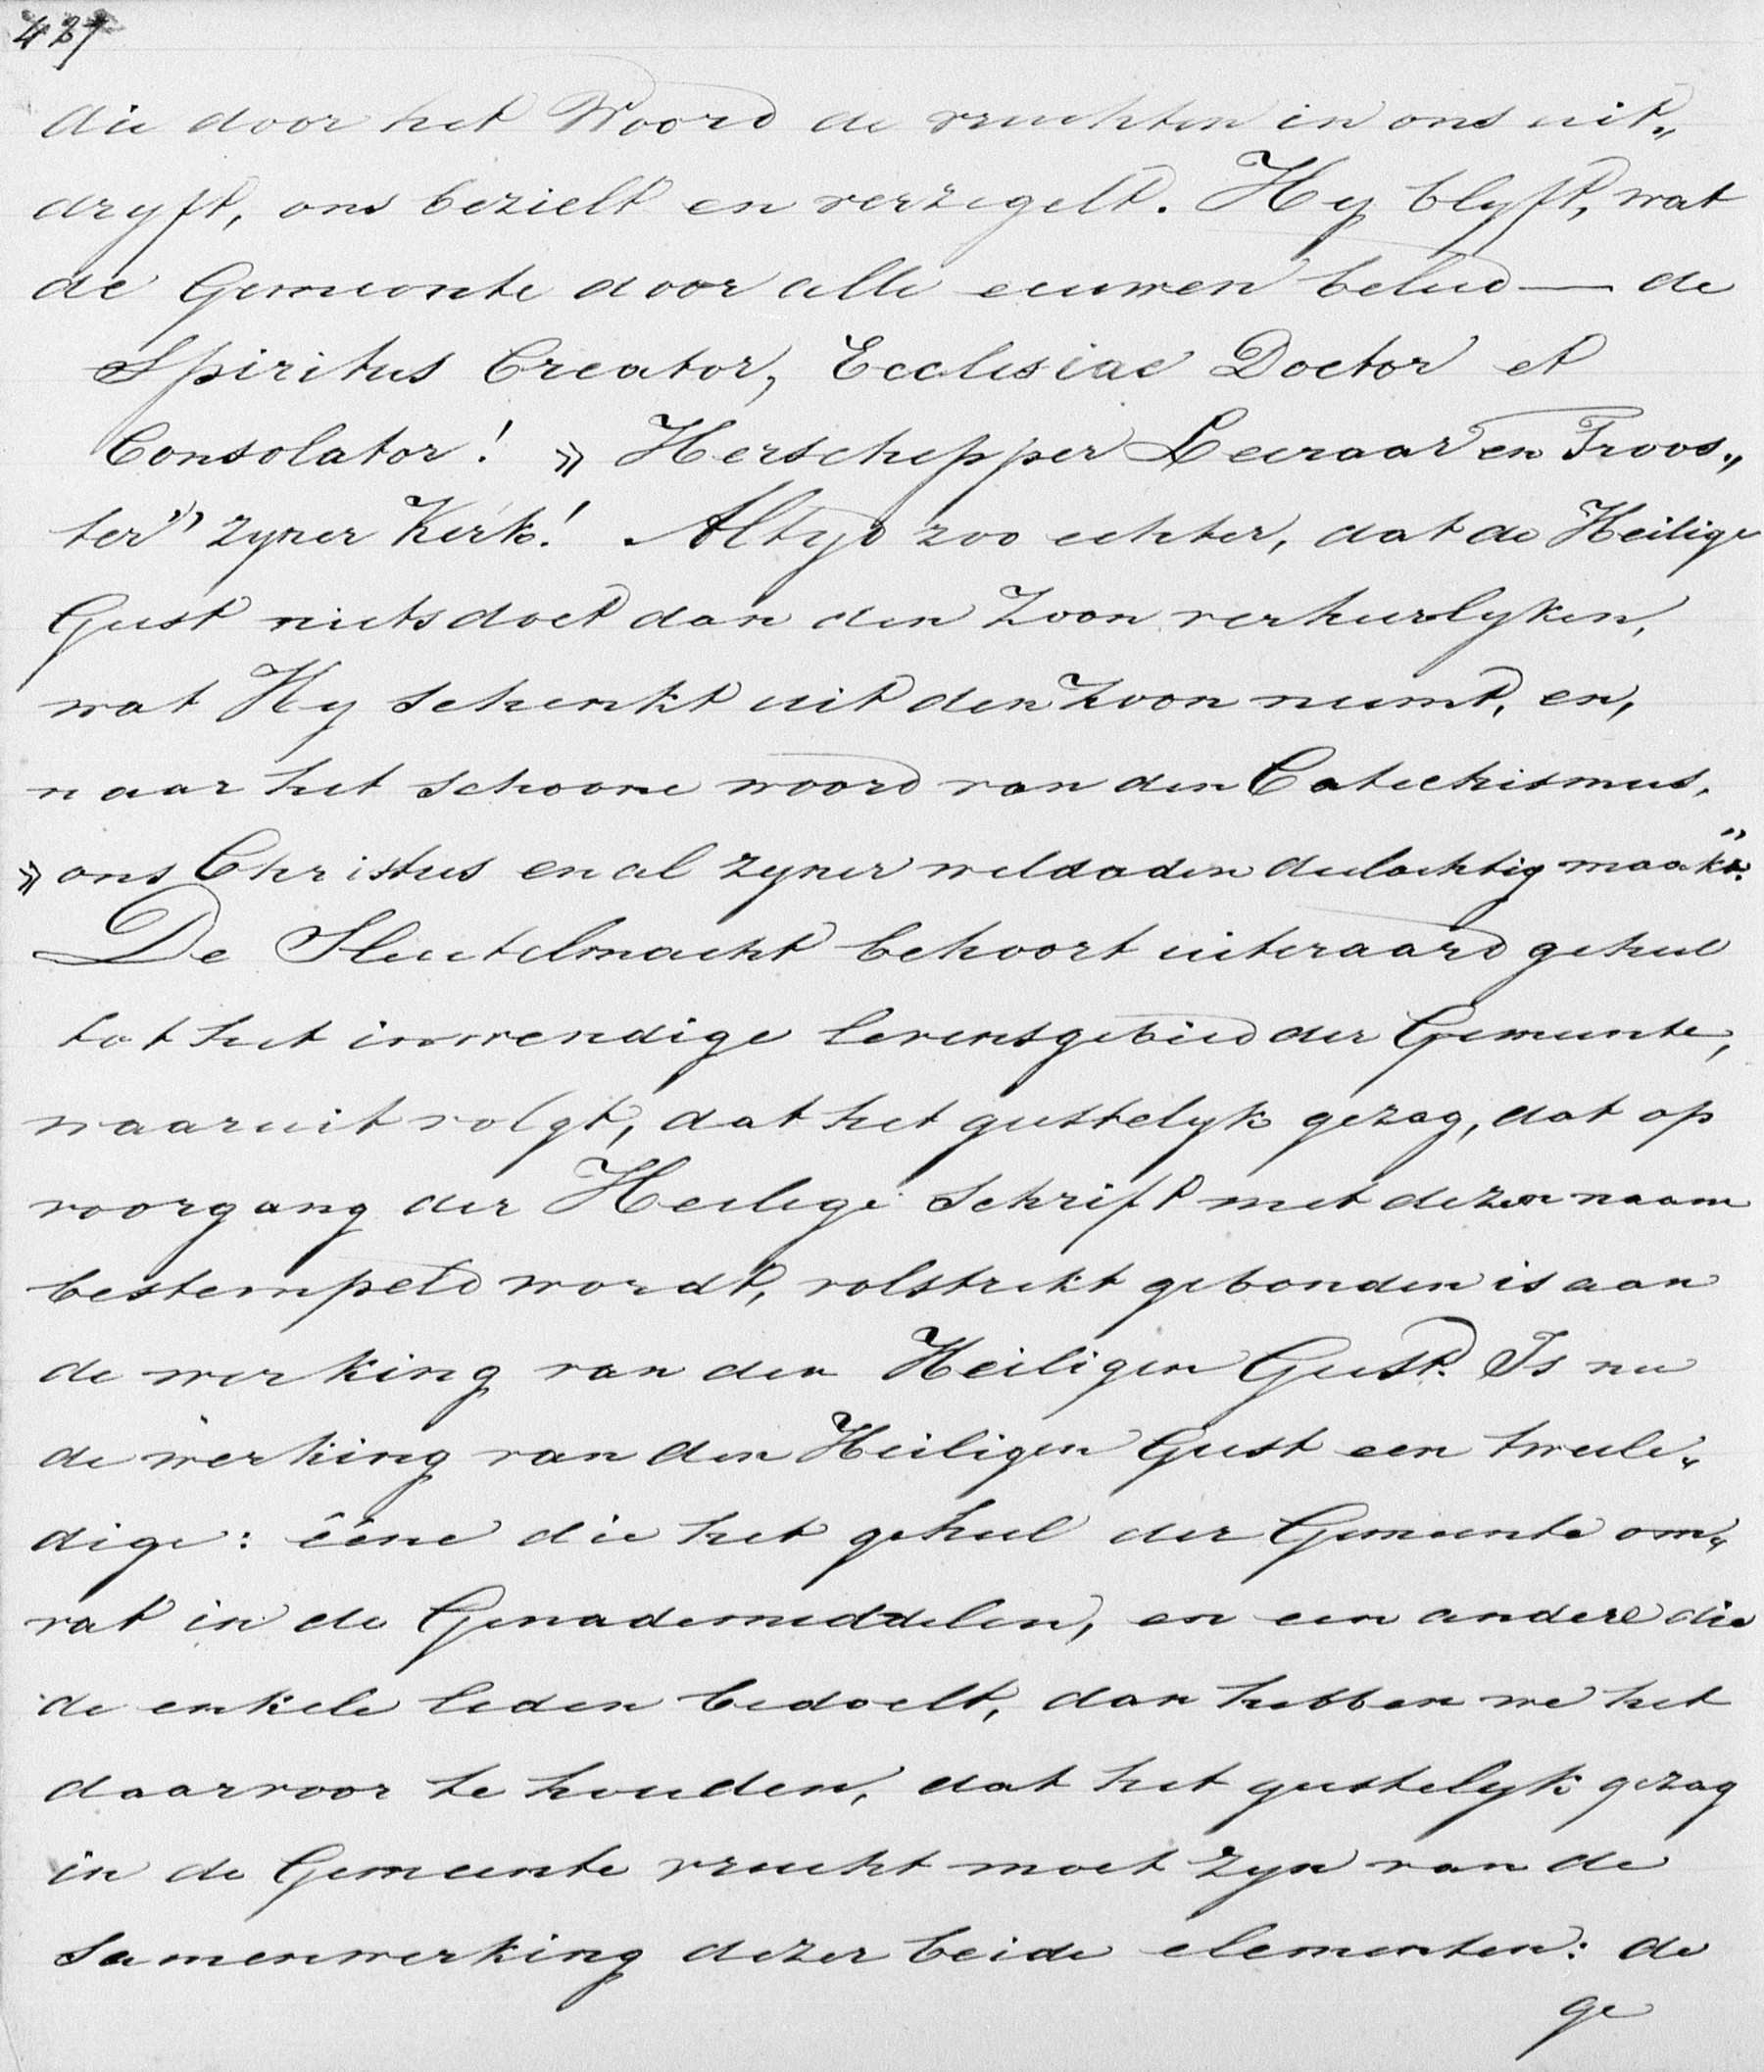 427
die door het Woord de vruchten in ons uit„
dryft, ons bezielt en verzegelt. Hy blyft, wat
de Gemeente door alle eeuwen beleed — de
Spiritus Creator, Ecclesiae Doctor et
Consolator! » Herschepper Leeraar en Troos„
ter" zyner Kerk! Altyd zoo echter, dat de Heilige
Geest niets doet dan den Zoon verheerlyken,
wat Hy schenkt uit den Zoon neemt, en,
naar het schoone woord van den Catechismus,
» ons Christus en al zyner weldaden deelachtig maakt".
De Sleutelmacht behoort uiteraard geheel
tot het inwendige levensgebied der Gemeente,
waaruit volgt, dat het geestelyk gezag, dat op
voorgang der Heilige Schrift met dezen naam
bestempeld wordt, volstrekt gebonden is aan
de werking van den Heiligen Geest. Is nu
de werking van den Heiligen Geest een tweele„
dige: ééne die het geheel der Gemeente om„
vat in de Genademiddelen, en een andere die
de enkele leden bedoelt, dan hebben we het
daarvoor te houden, dat het geestelyk gezag
in de Gemeente vrucht moet zyn van de
samenwerking dezer beide elementen: de
ge